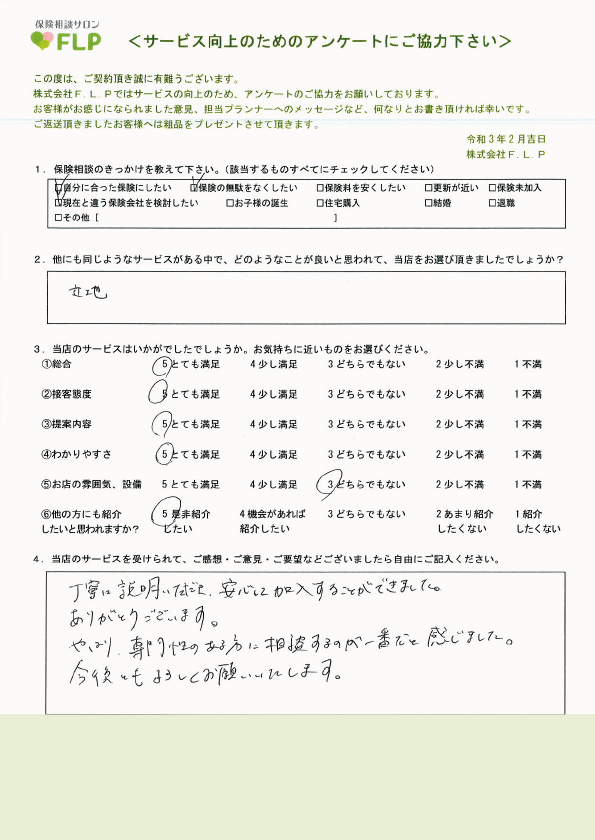 保険相談サロン
FLP
＜サービス向上のためのアンケートにご協力下さい＞
この度は、ご契約頂き誠に有難うございます。
株式会社Ｆ.Ｌ.Ｐではサービスの向上のため、アンケートのご協力をお願いしております。
お客様がお感じになられました意見、担当プランナーへのメッセージなど、何なりとお書き頂ければ幸いです。
ご返送頂きましたお客様へは粗品をプレゼントさせて頂きます。
令和３年２月吉日
株式会社Ｆ.Ｌ.Ｐ
１．保険相談のきっかけを教えて下さい。（該当するものすべてにチェックしてください）
☑自分に合った保険にしたい ☑保険の無駄をなくしたい □保険料を安くしたい □更新が近い □保険未加入
☑現在と違う保険会社を検討したい □お子様の誕生 □住宅購入 □結婚 □退職
□その他［ ］
２．他にも同じようなサービスがある中で、どのようなことが良いと思われて、当店をお選び頂きましたでしょうか？
立地
３．当店のサービスはいかがでしたでしょうか。お気持ちに近いものをお選びください。
①総合 5とても満足 4少し満足 3どちらでもない 2少し不満 1不満
②接客態度 5とても満足 4少し満足 3どちらでもない 2少し不満 1不満
③提案内容 5とても満足 4少し満足 3どちらでもない 2少し不満 1不満
④わかりやすさ 5とても満足 4少し満足 3どちらでもない 2少し不満 1不満
⑤お店の雰囲気、設備 5とても満足 4少し満足 3どちらでもない 2少し不満 1不満
⑥他の方にも紹介 5是非紹介 4機会があれば 3どちらでもない 2あまり紹介 1紹介
したいと思われますか？ したい 紹介したい したくない したくない
４．当店のサービスを受けられて、ご感想・ご意見・ご要望などございましたら自由にご記入ください。
丁寧に説明いただき、安心して加入することができました。
ありがとうございます。
やはり、専門性のある方に相談するのが一番だと感じました。
今後ともよろしくお願いいたします。